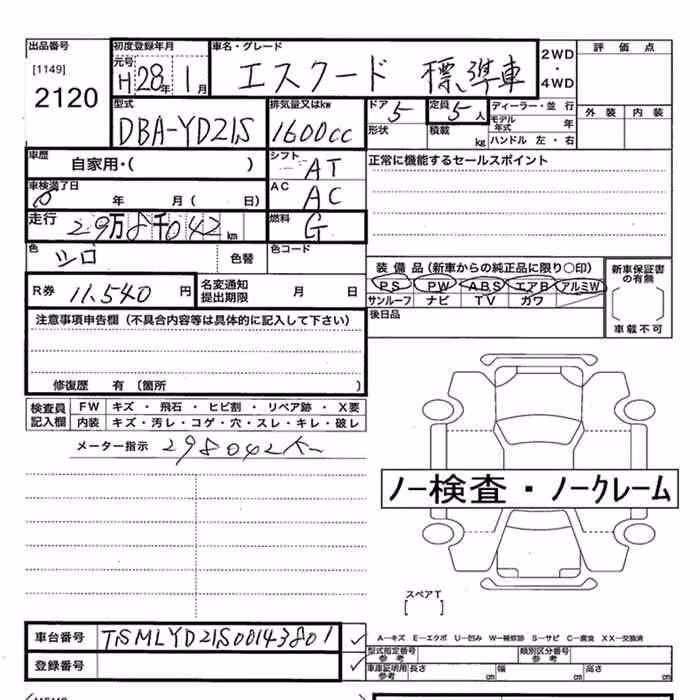 出品番号
[1149]
2120
初度登録年月
元号
H 28年 1月
車名・グレード
エスクード 標準車
2WD
・
4WD
評価点
外装 内装
型式
DBA-YD21S
排気量又はkw
1600cc
ドア 5
形状
定員 5人
積載 kg
ディーラー・並行
モデル年式 年
ハンドル 左・右
車歴
自家用・( )
シフト
AT
正常に機能するセールスポイント
車検満了日
年 月 ( 日)
AC
AC
走行
29万8千042 km
燃料
G
色
シロ
色替
色コード
R券 11,540 円
名変通知
提出期限
月 日
装備品(新車からの純正品に限り○印)
PS PW ABS エアB アルミW
サンルーフ ナビ TV カワ
後日品
新車保証書
の有無
車載不可
注意事項申告欄(不具合内容等は具体的に記入して下さい)
修復歴 有〔箇所 〕
検査員
記入欄
FW キズ・飛石・ヒビ割・リペア跡・X要
内装 キズ・汚レ・コゲ・穴・スレ・キレ・破レ
メーター指示 298042K
ノー検査・ノークレーム
スペアT
[ ]
A―キズ E―エクボ U―凹み W―補修跡 S―サビ C―腐食 XX―交換済
車台番号 TSMLYD21S00143801 ✓
登録番号 ✓
型式指定番号
参考
類別区分番号
参考
車庫証明記載
参考
長さ cm 幅 cm 高さ cm